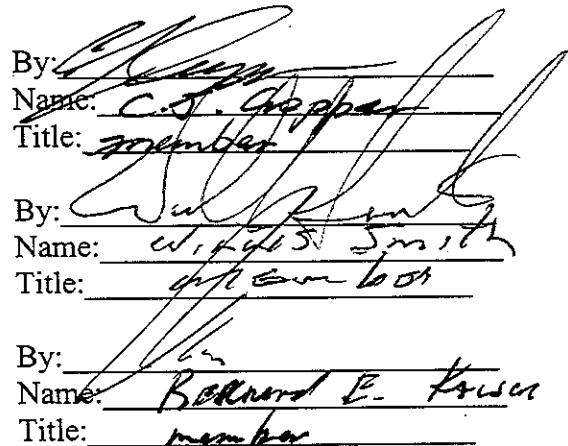 By:
Name: C.J. Choppar
Title: member
By:
Name: Smith
Title: member
By:
Name: Bernard E. Kaiser
Title: member